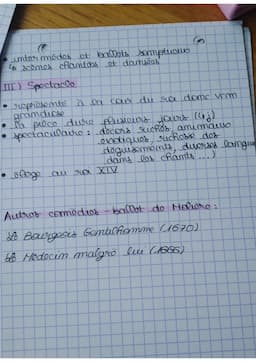 • intermèdes et ballets somptueux
↳ scènes chantées et dansées
III) Spectacle
• représenté à la cour du roi donc vrm
grandiose
• la pièce dure plusieurs jours (4j)
• spectaculaire : décors riches, animaux
exotiques, richesse des
déguisements, diverses langues
dans les chants ...)
• éloge au roi XIV
Autres comédies-ballet de Molière :
↳ Bourgeois Gentilhomme (1670)
↳ Médecin malgré lui (1666)